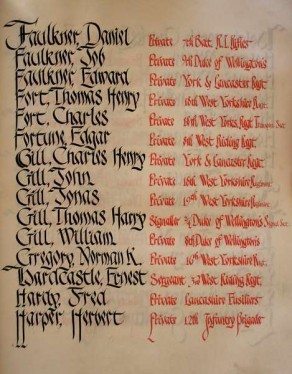 Faulkner, Daniel Private 7th Batt. K.L. Rifles
Faulkner, Job Private 9th Duke of Wellington's
Faulkner, Edward Private York & Lancaster Regt.
Fort, Thomas Henry Private 18th West Yorkshire Regt.
Fort, Charles Private 18th West Yorks. Regt.
Fortune, Edgar Private 8th West Riding Regt.
Gill, Charles Henry Private York & Lancaster Regt.
Gill, John Private 16th West Yorkshire
Gill, Jonas Private 15th West Yorkshire
Gill, Thomas Harry Signaller 2/4 Duke of Wellington's
Gill, William Private 8th Duke of Wellington's
Gregory, Norman K. Private 10th West Yorkshire Regt.
Hardcastle, Ernest Sergeant West Riding Regt.
Hardy, Fred Private Lancashire Fusiliers
Harper, Herbert Private 12th Infantry Brigade